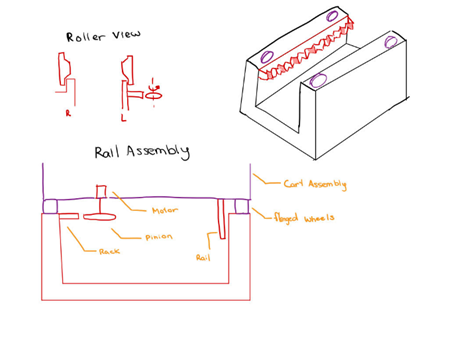 Roller View
R
L
Rail Assembly
Cart Assembly
Motor
flanged wheels
Pinion
Rack
Rail